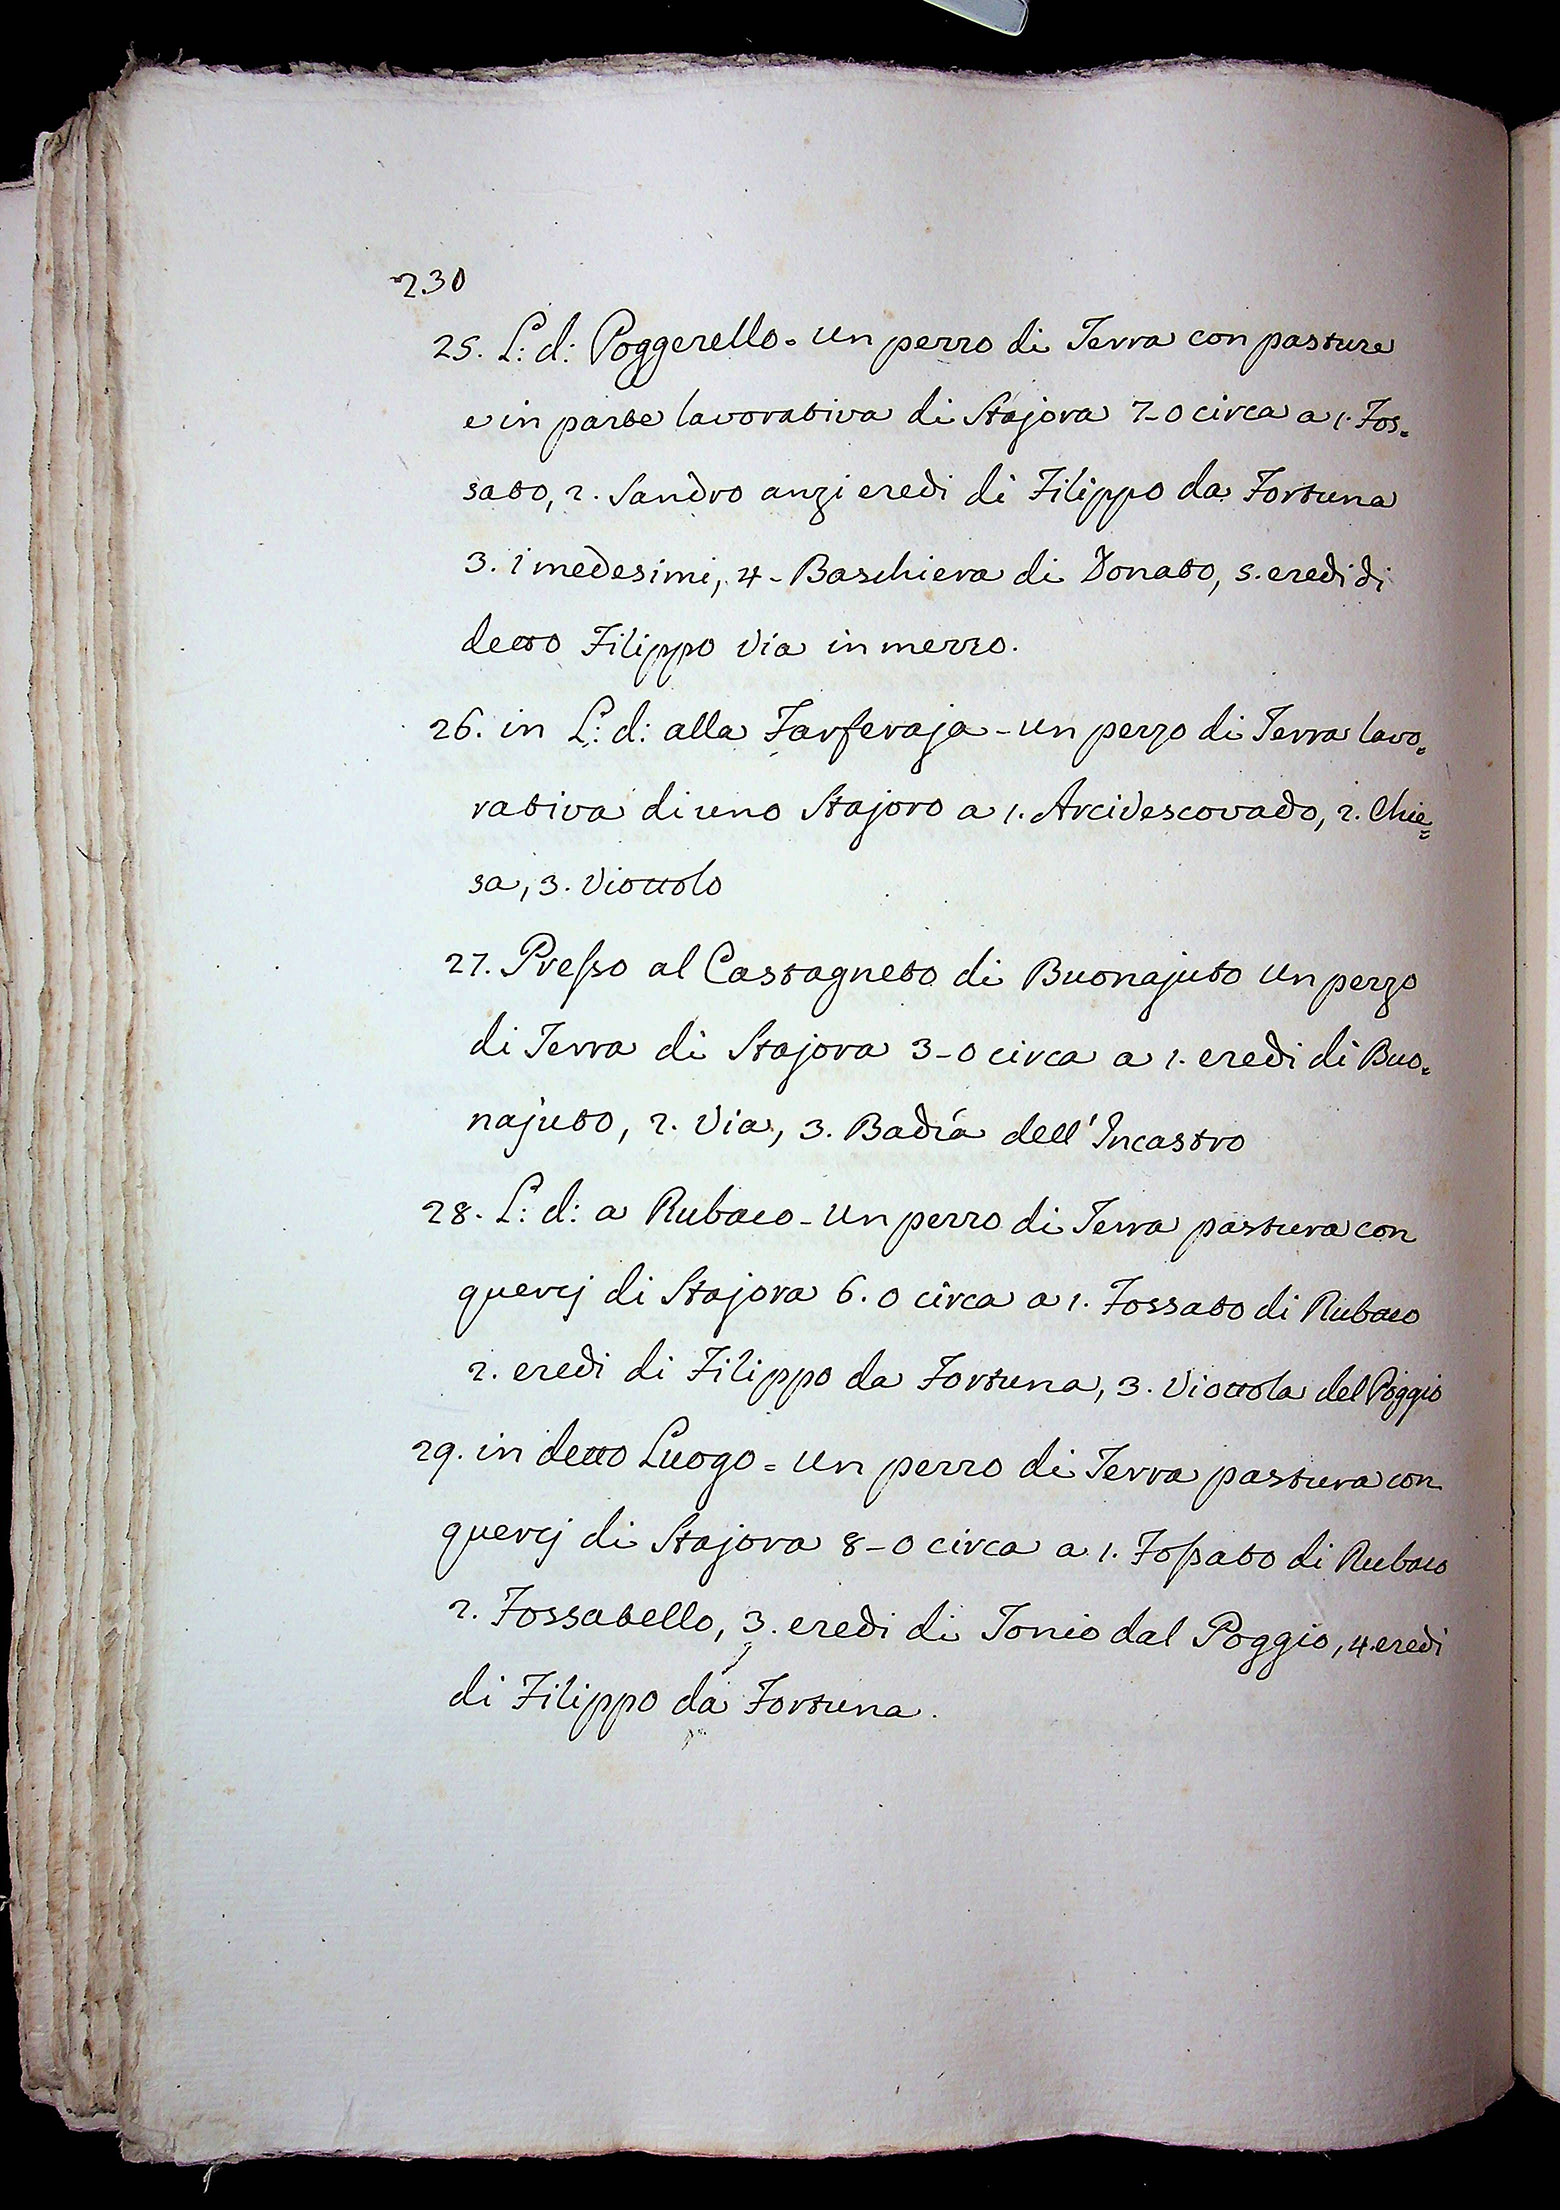 230
25. L: d: Poggerello = un pezzo di Terra con pasture
e in parte lavorativa di Stajora 7-0 circa a 1. Fos=
sato, 2. Sandro anzi eredi di Filippo da Fortuna
3. i medesimi, 4 - Baschiera di Donato, 5. eredi di
detto Filippo via in mezzo.
26. in L: d: alla Farferaja - un pezzo di Terra lavo=
rativa di uno Stajoro a 1. Arcivescovado, 2. Chie=
sa, 3. Viottolo
27. Presso al Castagneto di Buonajuto un pezzo
di Terra di Stajora 3-0 circa a 1. eredi di Buo=
najuto, 2. Via, 3. Badía dell'Incastro
28. L: d: a Rubaco - un pezzo di Terra pastura con
quercj di Stajora 6.0 circa a 1. Fossato di Rubaco
2. eredi di Filippo da Fortuna, 3. Viottola del Poggio
29. in detto Luogo = un pezzo di Terra pastura con
quercj di Stajora 8-0 circa a 1. Fossato di Rubaco
2. Fossatello, 3. eredi di Tonio dal Poggio, 4. eredi
di Filippo da Fortuna.